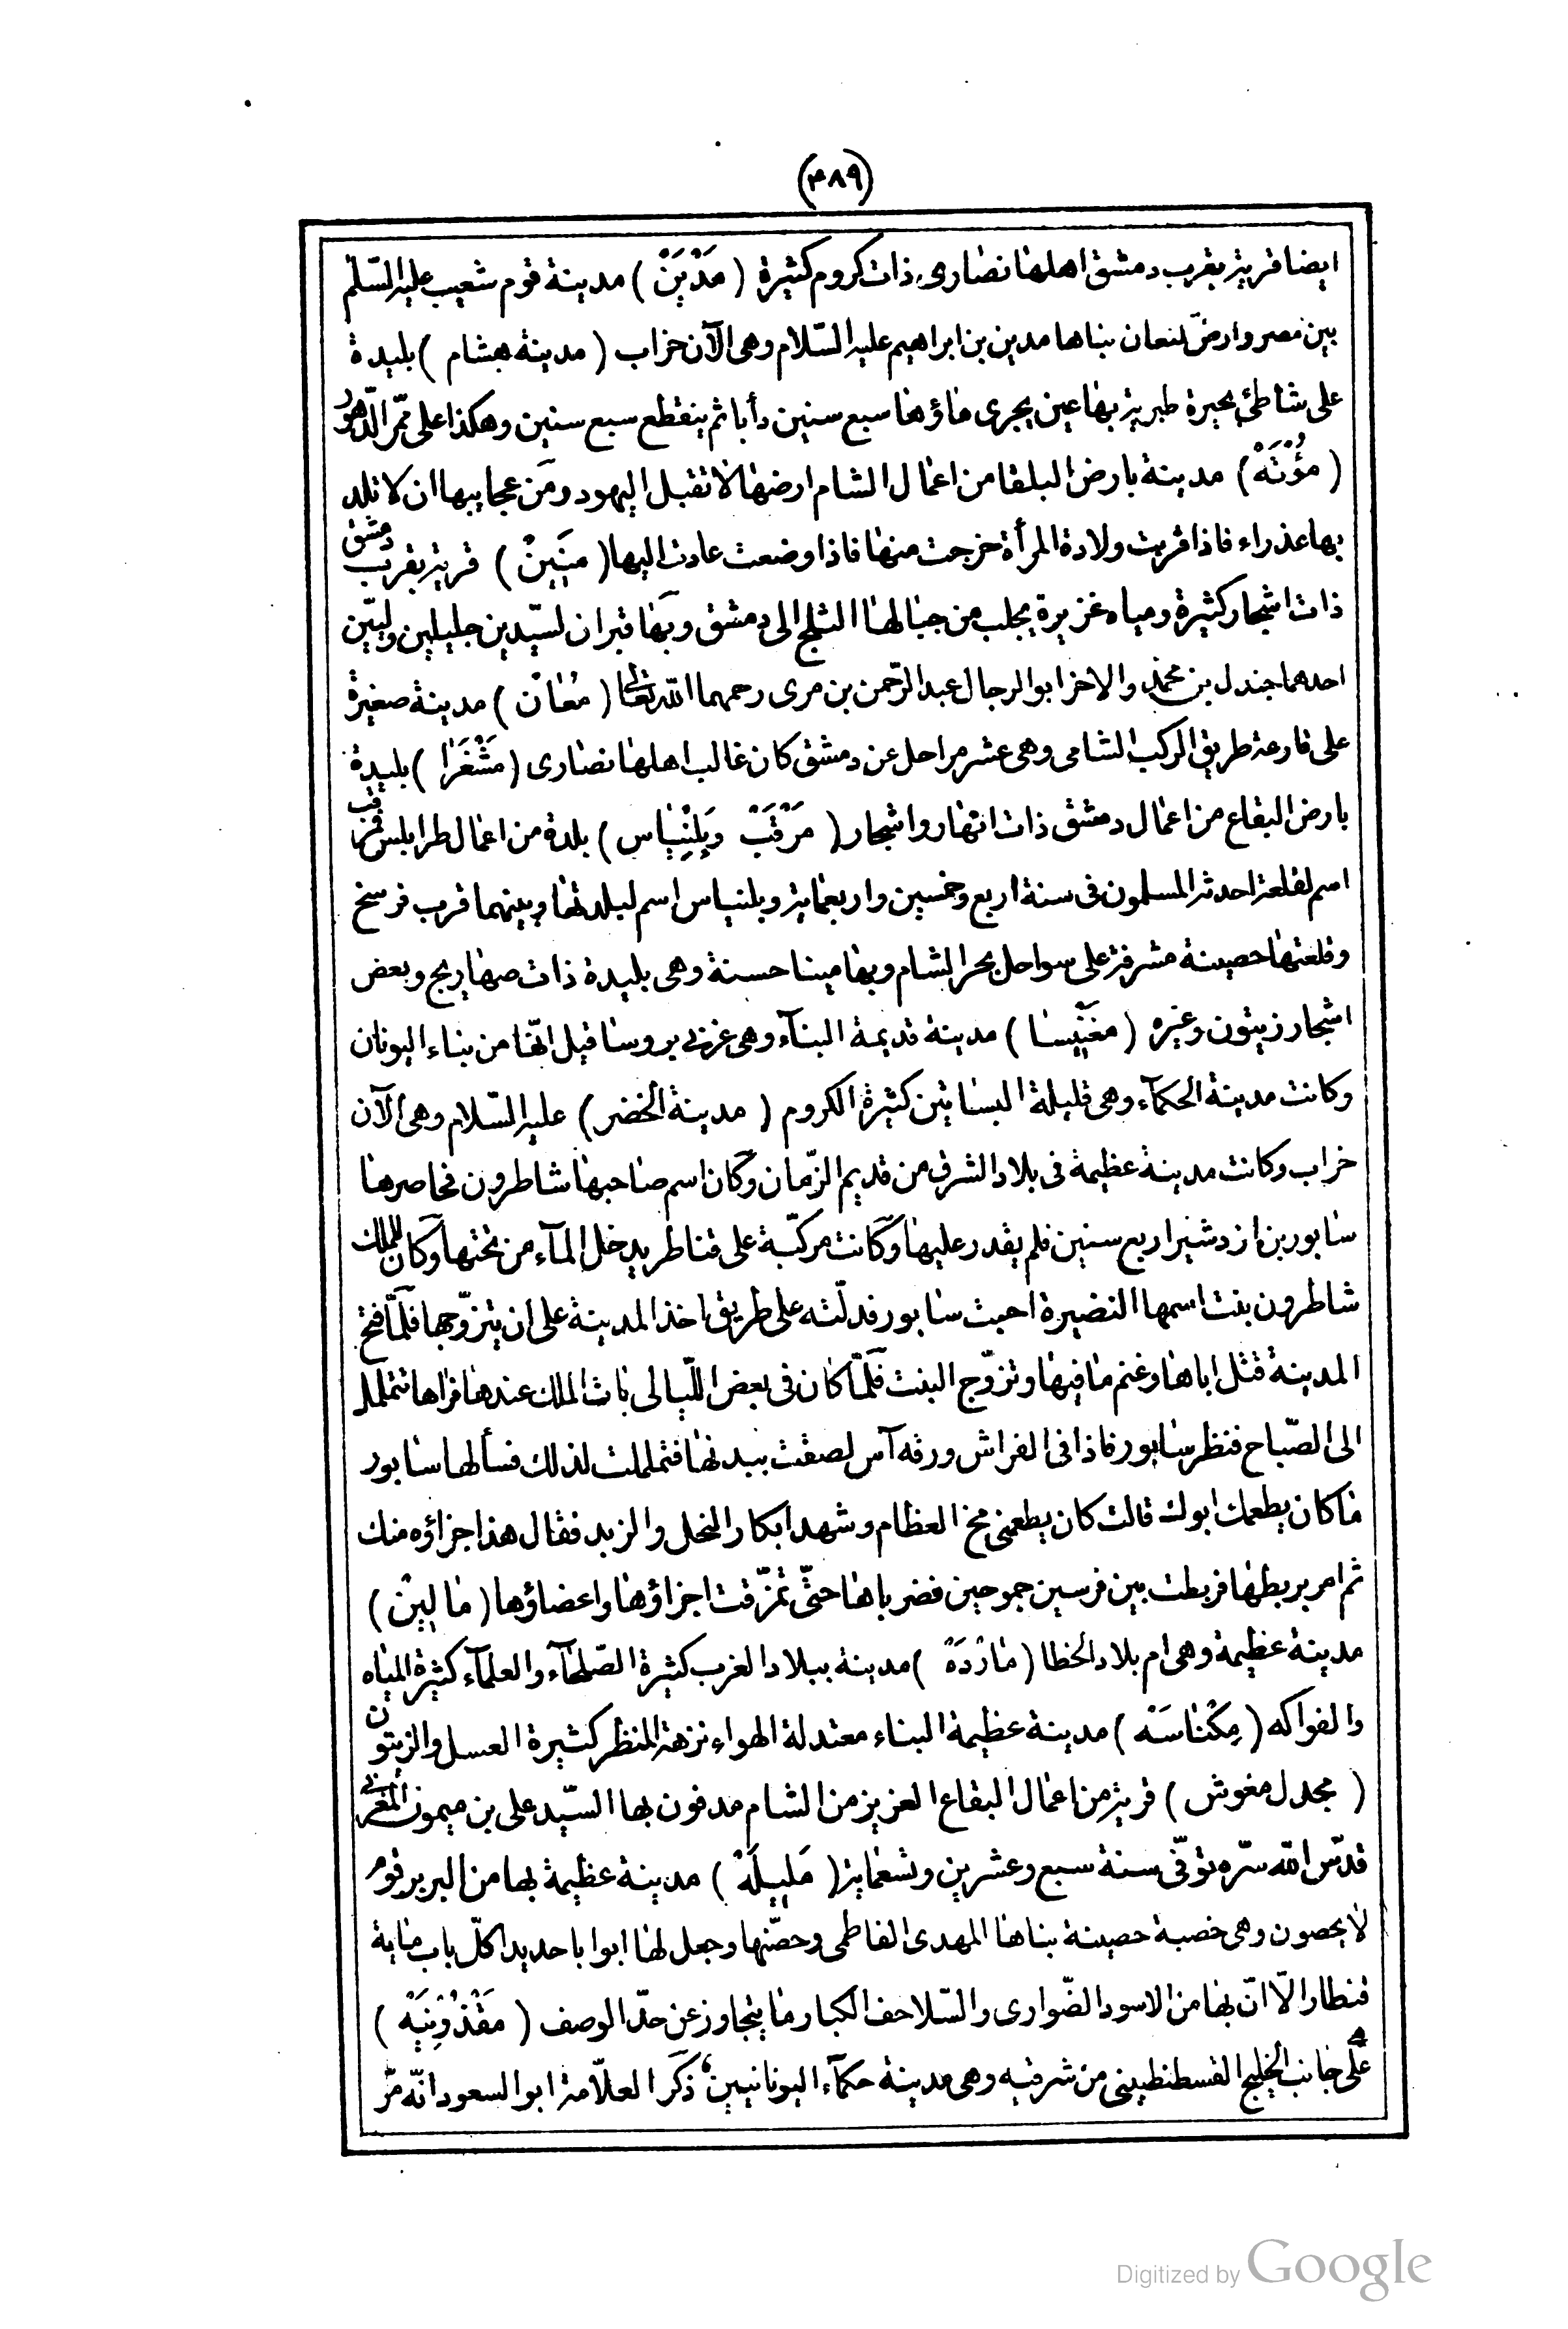 (٤٨٩)
ايضا قرية بقرب دمشق اهلها نصارى ذات كروم كثيرة ( مَدْيَنْ ) مدينة قوم شعيب عليه السّلم
بين مصر وارض كنعان بناها مدين بن ابراهيم عليه السّلام وهى الآن خراب ( مدينة هشام ) بليدة
على شاطئ بحيرة طبرية بها عين يجرى ماؤها سبع سنين دأبا ثم ينقطع سبع سنين وهكذا على ممّر الدّهور
( مؤُنَهْ ) مدينة بارض البلقا من اعمال الشام ارضها لا تقبل اليهود ومن عجايبها ان لا تلد
بها عذراء فاذا قربت ولادة المرأة خرجت منها فاذا وضعت عادت اليها ( مَنِينْ ) قرية بقرب دمشق
ذات اشجار كثيرة ومياه غزيرة يجلب من جبالها الثلج الى دمشق وبها قبران لسيّدين جليلين وليّين
احدهما جندل بن محمد والاخر ابو الرجال عبد الرّحمن بن مرى رحمهما الله تعالى ( مُعٰانْ ) مدينة صغيرة
على قارعة طريق الركب الشامى وهى عشر مراحل عن دمشق كان غالب اهلها نصارى ( مَشْغَرٰا ) بليدة
بارض البقاع من اعمال دمشق ذات انهار واشجار ( مَرْقَبْ وَبِلِنْيٰاس ) بلدة من اعمال طرابلس فمرقب
اسم لقلعة احدثه المسلمون فى سنة اربع وخمسين واربعماية وبلنياس اسم لبلدتها وبينهما قرب فرسخ
وقلعتها حصينة مشرفة على سواحل بحر الشام وبها مينا حسنة وهى بليدة ذات صهاريج وبعض
اشجار زيتون وغيره ( مَغْنِيسا ) مدينة قديمة البنآء وهى غربى بروسا قيل انّها من بناء اليونان
وكانت مدينة الحكمآء وهى قليلة البساتين كثيرة الكروم ( مدينة الخضر ) عليه السّلام وهى الآن
خراب وكانت مدينة عظيمة فى بلاد الشرق من قديم الزّمان وكان اسم صاحبها شاطرون فحاصرها
سابور بن ازدشير اربع سنين فلم يقدر عليها وكانت مركّبة على قناطر يدخل المآء من تحتها وكان للملك
شاطرون بنت اسمها النضيرة احبت سابور فدلّته على طريق اخذ المدينة على ان يتزوّجها فلمّا فتح
المدينة قتل اباها وغنم ما فيها وتزوّج البنت فلمّا كان فى بعض اللّيالى بات الملك عندها فراها تتململ
الى الصّباح فنظر سابور فاذا فى الفراش ورقه آس لصقت ببدنها فتململت لذلك فسألها سابور
ما كان يطعمك ابوك قالت كان يطعمنى مخ العظام وشهد ابكار النحل والزبد فقال هذا جزاؤه منك
ثم امر بربطها فربطت بين فرسين جموحين فضرباها حتّى تمزّقت اجزاؤها واعضاؤها ( مٰا لِينْ )
مدينة عظيمة وهى ام بلاد الخطا ( مٰارْدَهْ ) مدينة ببلاد الغرب كثيرة الصّلحآء والعلمآء كثيرة المياه
والفواكه ( مِكْنٰاسَهْ ) مدينة عظيمة البناء معتدلة الهواء نزهة المنظر كثيرة العسل والزيتون
( مجدل مغوش ) قرية من اعمال البقاع العزيز من الشام مدفون بها السيّد على بن ميمون المغربى
قدّس الله سرّه توفّى سنة سبع وعشرين وتسعماية ( مَلِيلَهْ ) مدينة عظيمة بها من البربر قوم
لا يحصون وهى خصبة حصينة بناها المهدى الفاطمى وحصّنها وجعل لها ابوابا حديدا كلّ باب ماية
قنطار الّا انّ بها من الاسود الضّوارى والسّلاحف الكبار ما يتجاوز عن حدّ الوصف ( مَقْذُونِيَهْ )
على جانب الخليج القسطنطينى من شرقيه وهى مدينة حكمآء اليونانيين ذكر العلّامة ابو السعود انّه مرّ
Digitized by Google